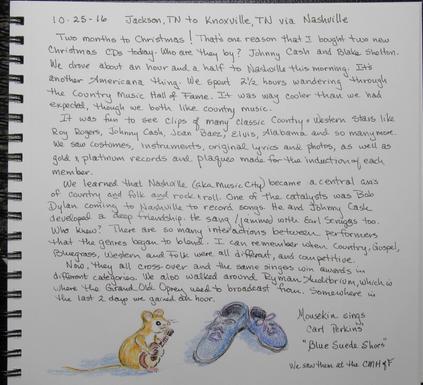 10-25-16 Jackson, TN to Knoxville, TN via Nashville
Two months to Christmas! That's one reason that I bought two new
Christmas CDs today. Who are they by? Johnny Cash and Blake Shelton.
We drove about an hour and a half to Nashville this morning. It's
another Americana thing. We spent 2½ hours wandering through
the Country Music Hall of Fame. It was way cooler than we had
expected, though we both like country music.
It was fun to see clips of many classic Country & Western stars like
Roy Rogers, Johnny Cash, Joan Baez, Elvis, Alabama and so many more.
We saw costumes, instruments, original lyrics and photos, as well as
gold & platinum records and plaques made for the induction of each
member.
We learned that Nashville (aka Music City) became a central axis
of country and folk and rock & roll. One of the catalysts was Bob
Dylan coming to Nashville to record songs. He and Johnny Cash
developed a deep friendship. He sang/jammed with Earl Scruggs too.
Who knew? There are so many interactions between performers
that the genres began to blend. I can remember when Country, Gospel,
Bluegrass, Western and Folk were all different, and competitive.
Now, they all cross-over and the same singers win awards in
different categories. We also walked around Ryman Auditorium, which is
where the Grand Old Oprey used to broadcast from. Somewhere in
the last 2 days we gained an hour.
Mousekin sings
Carl Perkins'
"Blue Suede Shoes"
We saw them at the CMHoF